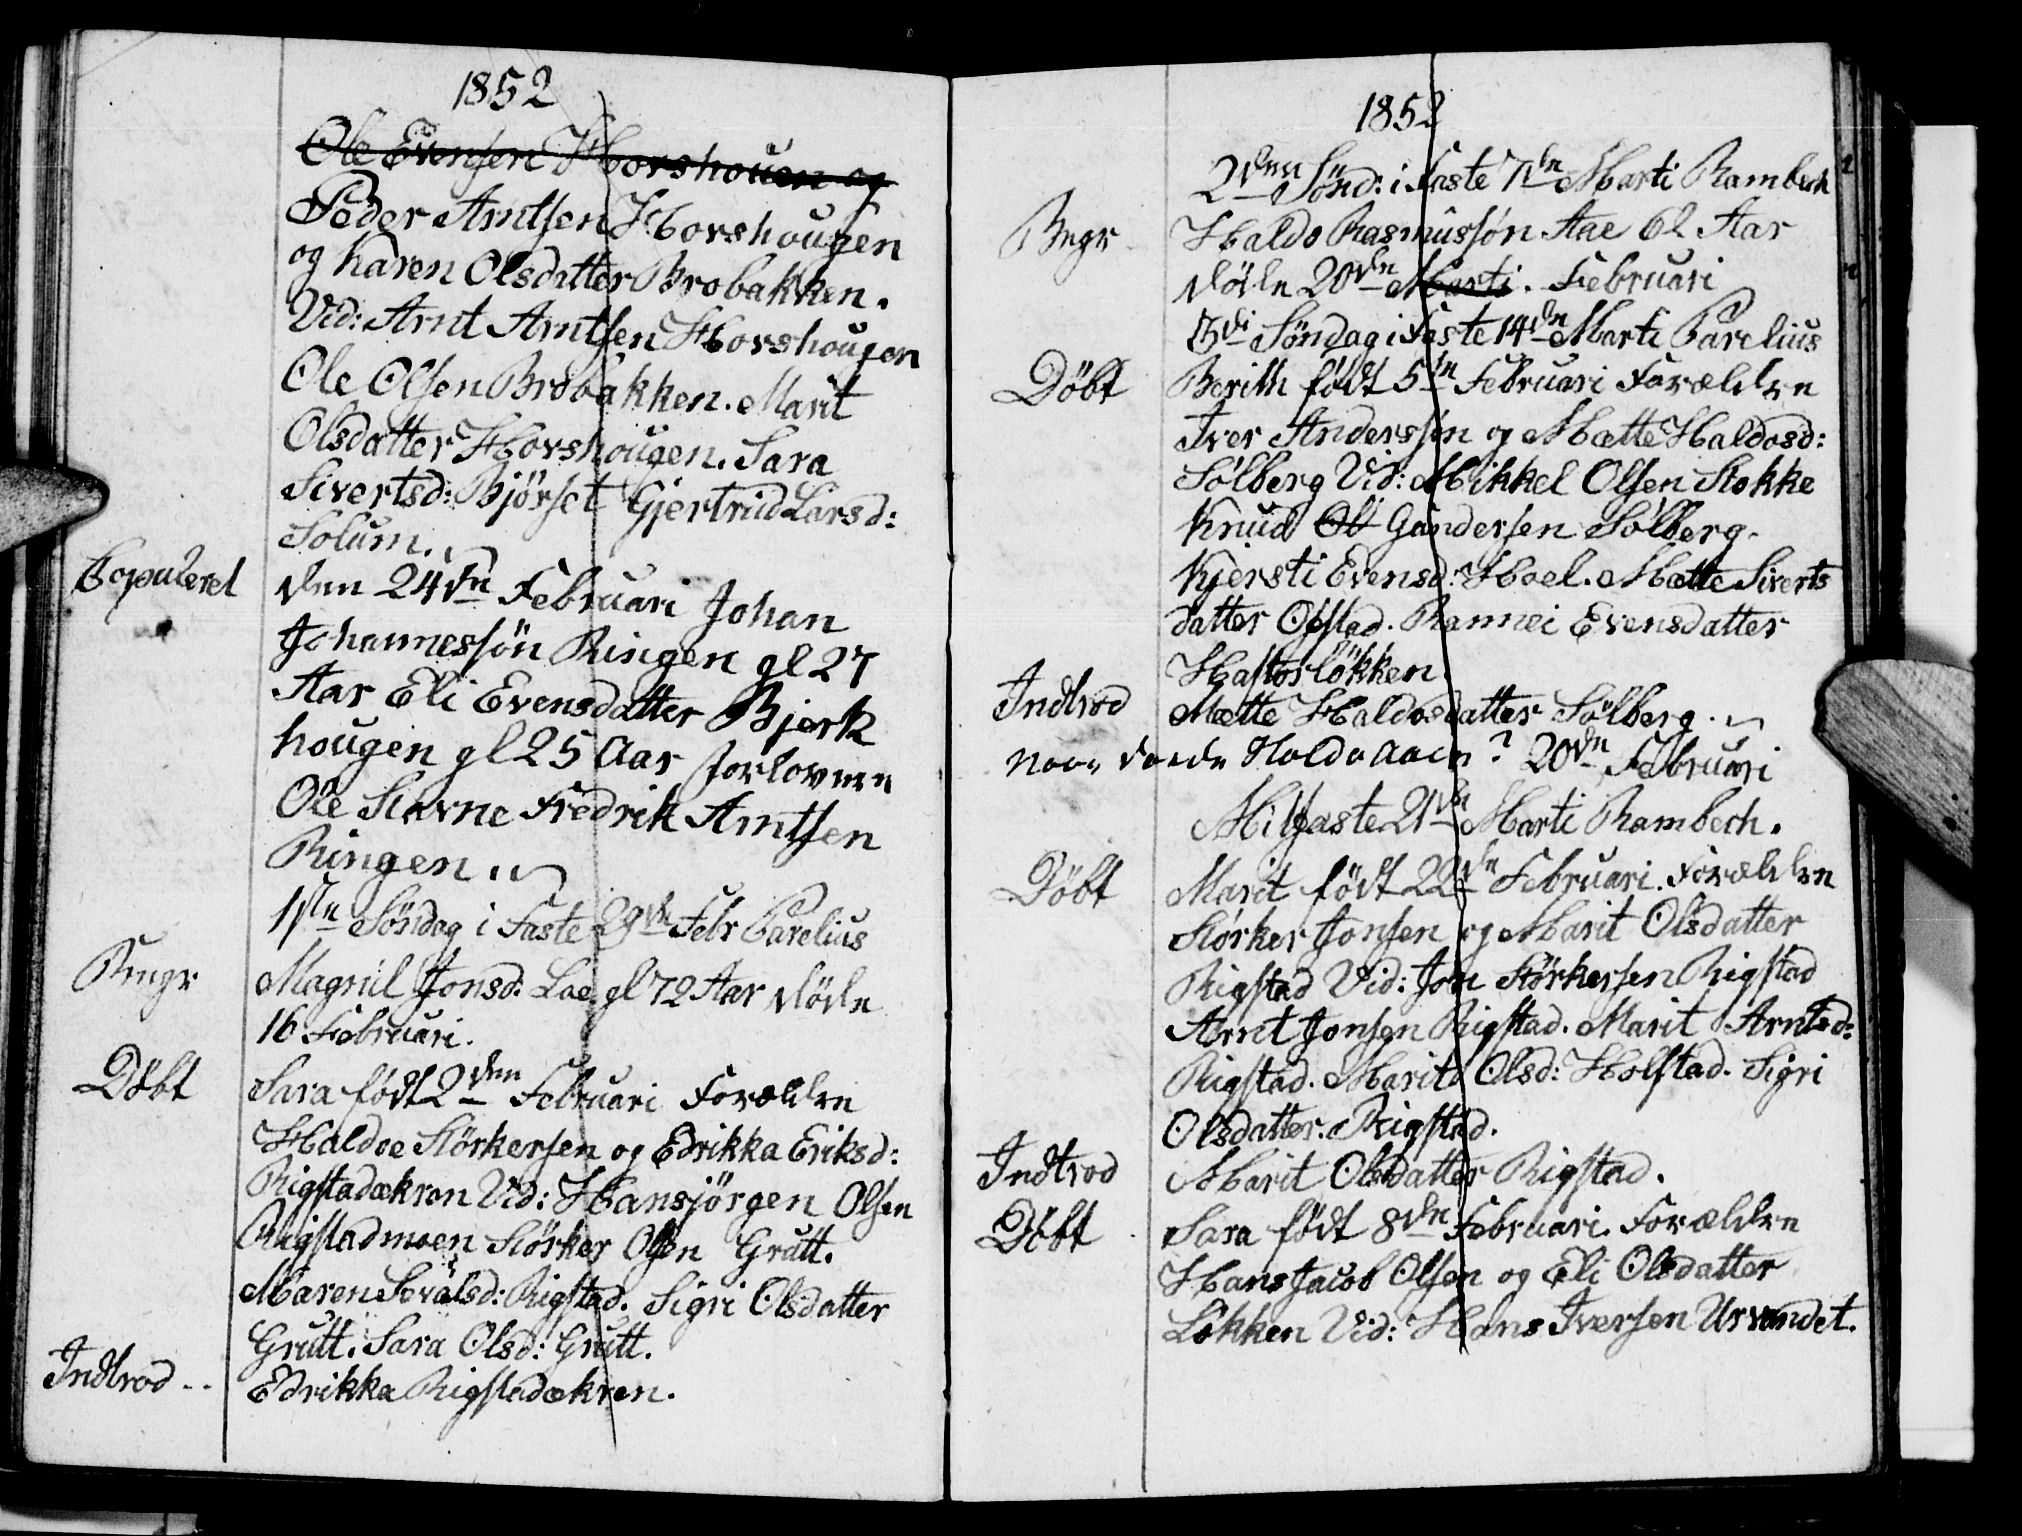 1852
Ole Evensen Horshouen og
Peder Arntsen Horshougen
og Karen Olsdatter Brobakken.
Vid: Arnt Arntsen Horshougen
Ole Olsen Brobakken. Marit
Olsdatter Horshougen. Sara
Sivertsd: Bjørset Gjertrud Larsd:
Solum.
Copuleret den 24de Februari Johan
Johannessøn Ringen gl 27
Aar Eli Evensdatter Bjerk
hougen gl 25 Aar forlovere
Ole Stavne Fredrik Arntsen
Ringen
1ste Söndag i Faste 29de Febr Parelius
Begr Magnil Jonsd: Lae gl 72 Aar döde
16 Februari.
Döbt Sara födt 2den Februari Forældre
Haldoe Störkersen og Edrikka Eriksd:
Rigstadækren Vid: Hansjörgen Olsen
Rigstadmoen Störker Olsen Grutt.
Maren Sivalsd: Rigstad. Sigri Olsdatter
Grutt. Sara Olsd: Grutt.
Indtrod.. Edrikka Rigstadækren.
1852
2den Sönd: i Faste 7de Marti Rambech
Begr Haldo Rasmussøn Aae 62 Aar
döde 20de Marti. Februari
3di Söndag i Faste 14de Marti Parelius
Döbt Berith födt 5te Februari Forældre
Iver Anderssøn og Mætte Haldosd:
Sölberg Vid: Mikkel Olsen Stokke
Knud Ol Gundersen Sölberg.
Kjersti Evensd: Hoel. Mætte Siverts
datter Ofstad. Rannei Evensdatter
Hastorløkken.
Indtrod Mætte Haldosdatter Sölberg.
naar døede Haldo Aaen? 20de Februari
Mitfaste 21de Marti Rambech.
Döbt Marit födt 22de Februari. Forældre
Störker Jonsen og Marit Olsdatter
Rigstad Vid: Jon Störkersen Rigstad
Arnt Jonsen Rigstad. Marit Arntsd:
Rigstad. Marit Olsd: Holstad. Sigri
Olsdatter. Rigstad.
Indtrod Marit Olsdatter Rigstad.
Döbt Sara födt 8de Februari. Forældre
Hans Jacob Olsen og Eli Olsdatter
Løkken Vid: Hans Iversen Urvandet.